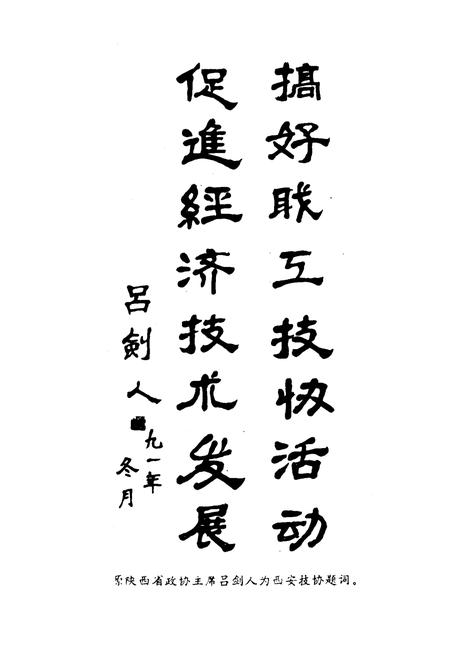 搞好职工技协活动
促進經济技术发展
呂劍人
九一年
冬月
原陕西省政协主席吕剑人为西安技协题词。